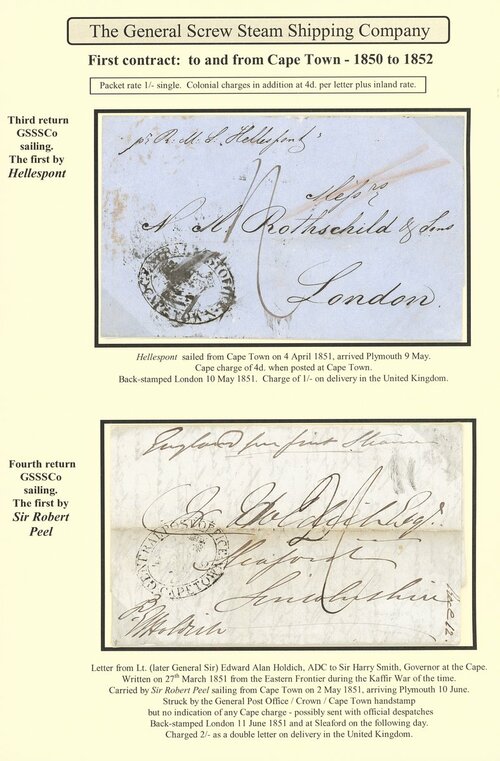 The General Screw Steam Shipping Company
First contract:  to and from Cape Town - 1850 to 1852
Packet rate 1/- single.  Colonial charges in addition at 4d. per letter plus inland rate.
Third return
GSSSCo
sailing.
The first by
Hellespont
pr R. M. S. Hellespont
Messrs
N. M. Rothschild & Sons
London.
Hellespont  sailed from Cape Town on 4 April 1851, arrived Plymouth 9 May.
Cape charge of 4d. when posted at Cape Town.
Back-stamped London 10 May 1851.  Charge of 1/- on delivery in the United Kingdom.
Fourth return
GSSSCo
sailing.
The first by
Sir Robert
Peel
England per first Steamer
GENERAL POST OFFICE
CAPE TOWN
Holdich Esqr
Sleaford
Lincolnshire
Holdich
Letter from Lt. (later General Sir) Edward Alan Holdich, ADC to Sir Harry Smith, Governor at the Cape.
Written on 27th March 1851 from the Eastern Frontier during the Kaffir War of the time.
Carried by Sir Robert Peel sailing from Cape Town on 2 May 1851, arriving Plymouth 10 June.
Struck by the General Post Office / Crown / Cape Town handstamp
but no indication of any Cape charge - possibly sent with official despatches
Back-stamped London 11 June 1851 and at Sleaford on the following day.
Charged 2/- as a double letter on delivery in the United Kingdom.